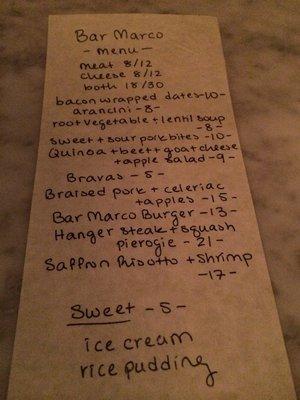 Bar Marco
- menu -
meat 8/12
cheese 8/12
both 18/30
bacon wrapped dates -10-
arancini - 8 -
root vegetable + lentil soup
- 8 -
sweet + sour pork bites -10-
Quinoa + beet + goat cheese
+ apple salad - 9 -
Bravas - 5 -
Braised pork + celeriac
+ apples - 15 -
Bar Marco Burger - 13 -
Hanger steak + squash
pierogie - 21 -
Saffron Risotto + Shrimp
- 17 -
Sweet - 5 -
ice cream
rice pudding